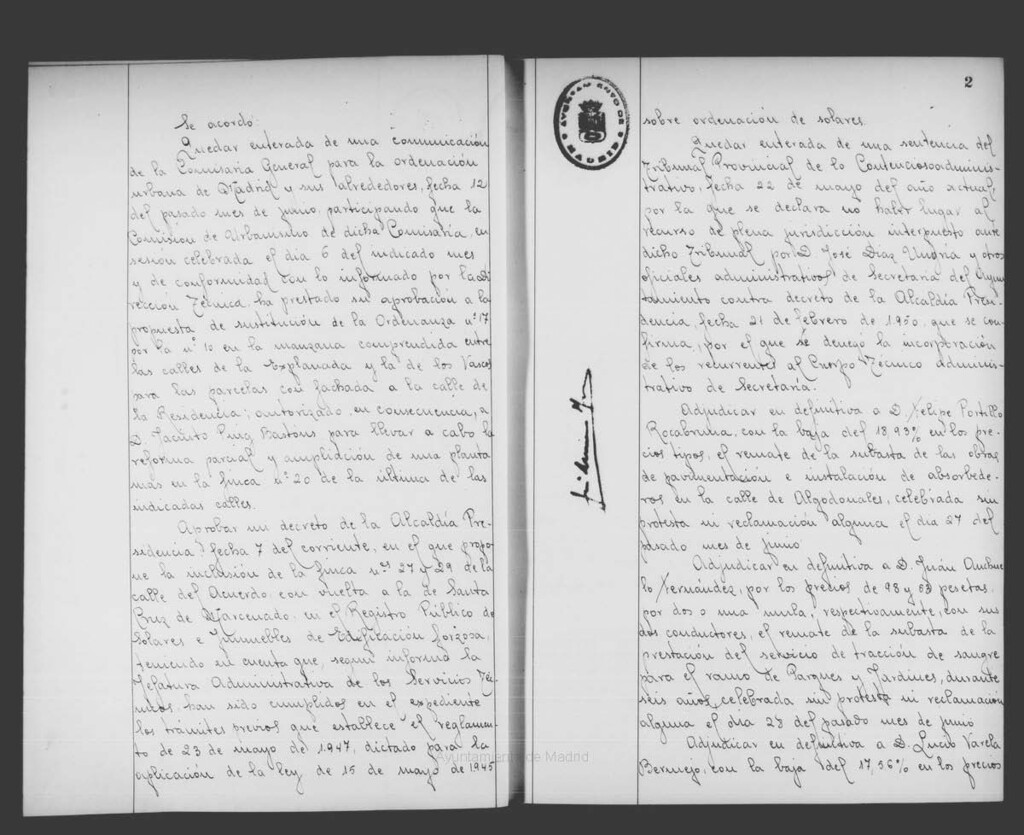 Se acordó:
Quedar enterada de una comunicación
de la Comisaría General para la ordenación
urbana de Madrid y sus alrededores, fecha 12
del pasado mes de junio, participando que la
Comisión de Urbanismo de dicha Comisaría, en
sesión celebrada el día 6 del indicado mes
y de conformidad con lo informado por la Di-
rección Técnica, ha prestado su aprobación a la
propuesta de sustitución de la Ordenanza nº 17
por la nº 10 en la manzana comprendida entre
las calles de la Explanada y la de los Vascos
para las parcelas con fachada a la calle de
la Residencia; autorizado, en consecuencia, a
D. Jacinto Puig Bastons para llevar a cabo la
reforma parcial y ampliación de una planta
más en la finca nº 20 de la última de las
indicadas calles.
Aprobar un decreto de la Alcaldía Pre-
sidencia, fecha 7 del corriente, en el que propo-
ne la inclusión de la finca nºs 27 y 29 de la
calle del Acuerdo, con vuelta a la de Santa
Cruz de Marcenado, en el Registro Público de
Solares e Inmuebles de Edificación forzosa,
teniendo en cuenta que, según informa la
Jefatura Administrativa de los Servicios Téc-
nicos, han sido cumplidos en el expediente
los trámites previos que establece el reglamen-
to de 23 de mayo de 1947, dictado para la
aplicación de la ley de 15 de mayo de 1945
2
AYUNTAMIENTO DE MADRID
sobre ordenación de solares.
Quedar enterada de una sentencia del
Tribunal Provincial de lo Contenciosoadminis-
trativo, fecha 22 de mayo del año actual,
por la que se declara no haber lugar al
recurso de plena jurisdicción interpuesto ante
dicho Tribunal por D. José Díaz y otros
oficiales administrativos de Secretaría del Ayun-
tamiento contra decreto de la Alcaldía Presi-
dencia, fecha 21 de febrero de 1950, que se con-
firma, por el que se denegó la incorporación
de los recurrentes al Cuerpo Técnico adminis-
trativo de Secretaría.
Adjudicar en definitiva a D. Felipe Portillo
Rocabruna, con la baja del 18,93% en los pre-
cios tipos, el remate de la subasta de las obras
de pavimentación e instalación de absorbede-
ros en la calle de Algodonales, celebrada sin
protesta ni reclamación alguna el día 27 del
pasado mes de junio
Adjudicar en definitiva a D. Julián
Fernández, por los precios de 98 y 53 pesetas,
por dos o una mula, respectivamente, con sus
dos conductores, el remate de la subasta de la
prestación del servicio de tracción de sangre
para el ramo de Parques y Jardines, durante
seis años, celebrada sin protesta ni reclamación
alguna el día 28 del pasado mes de junio
Adjudicar en definitiva a D. Lucio Varela
Bermejo, con la baja del 17,56% en los precios
Ayuntamiento de Madrid